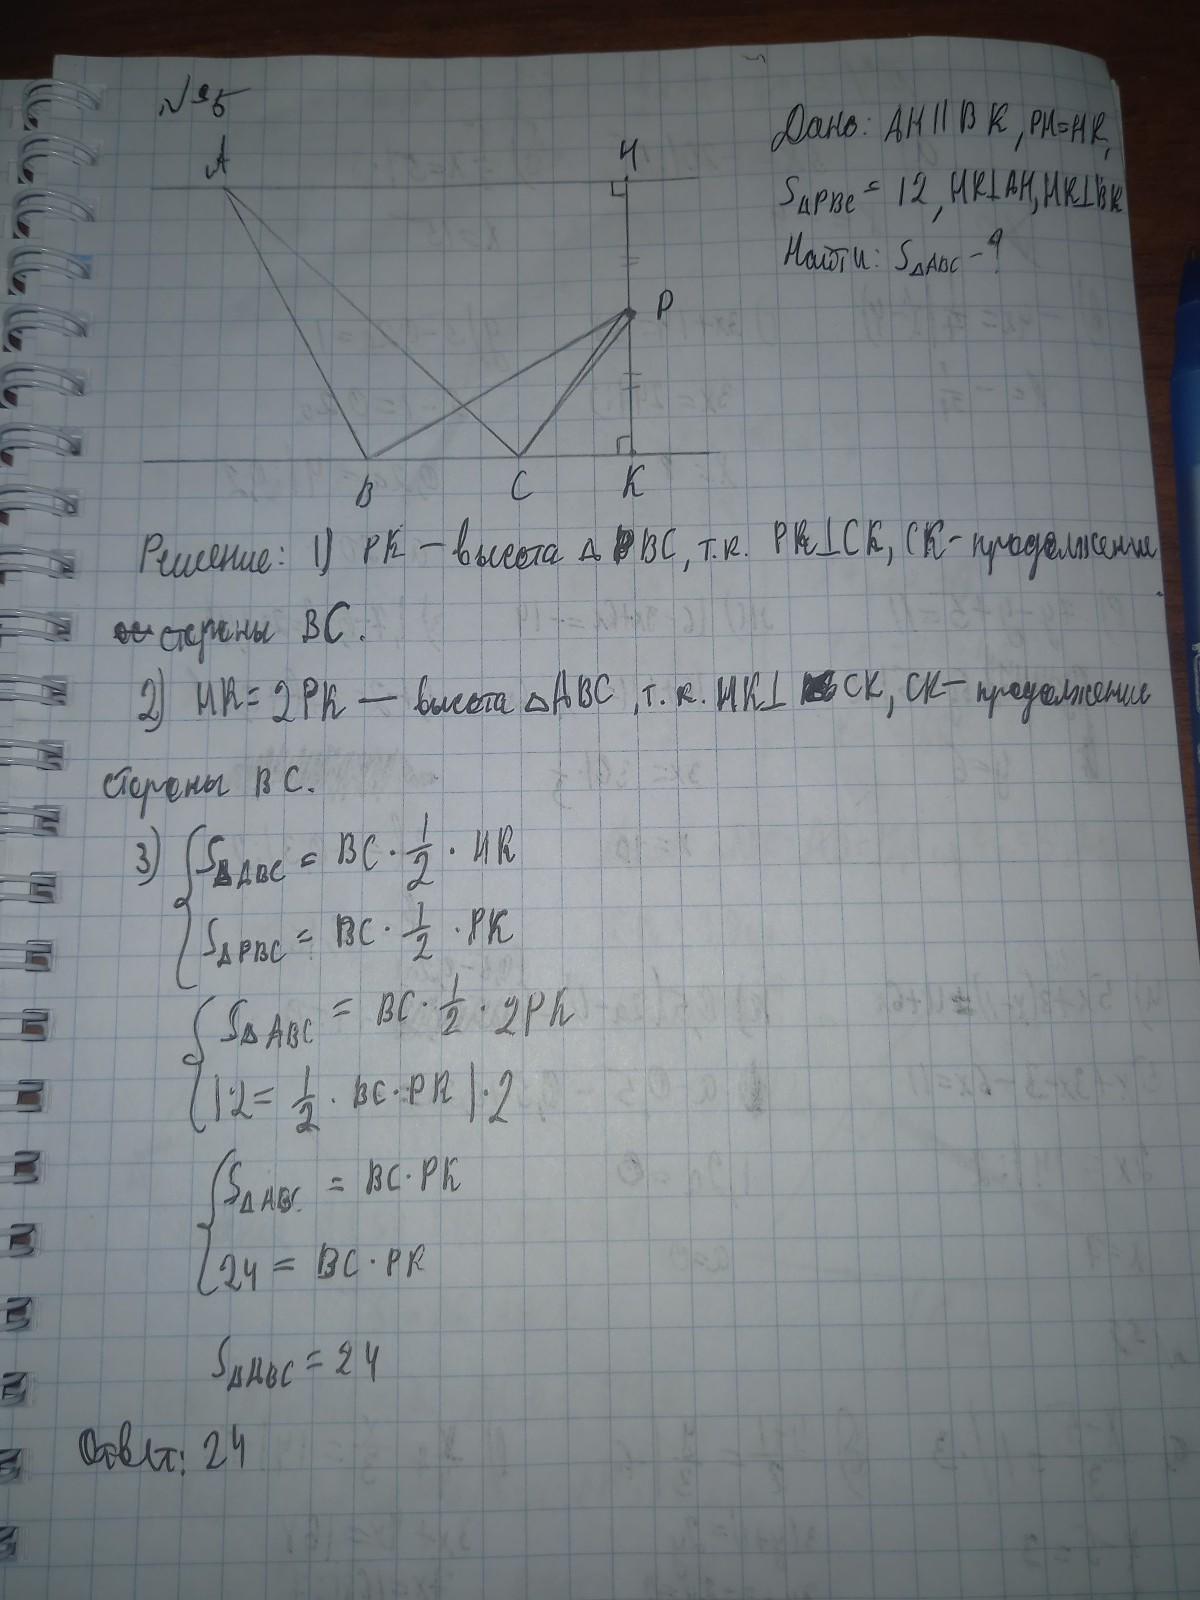 №5
Дано: AH || BK, PH=HK,
S△PBC = 12, HK⊥AH, HK⊥BK
Найти: S△ABC - ?
A
H
P
B
C
K
Решение: 1) PK – высота △PBC, т.к. PK⊥CK, CK – продолжение
стороны BC.
2) HK = 2PK — высота △ABC, т.к. HK⊥CK, CK – продолжение
стороны BC.
3) { S△ABC = BC · 1/2 · HK
S△PBC = BC · 1/2 · PK
{ S△ABC = BC · 1/2 · 2PK
12 = 1/2 · BC · PK | · 2
{ S△ABC = BC · PK
24 = BC · PK
S△ABC = 24
Ответ: 24